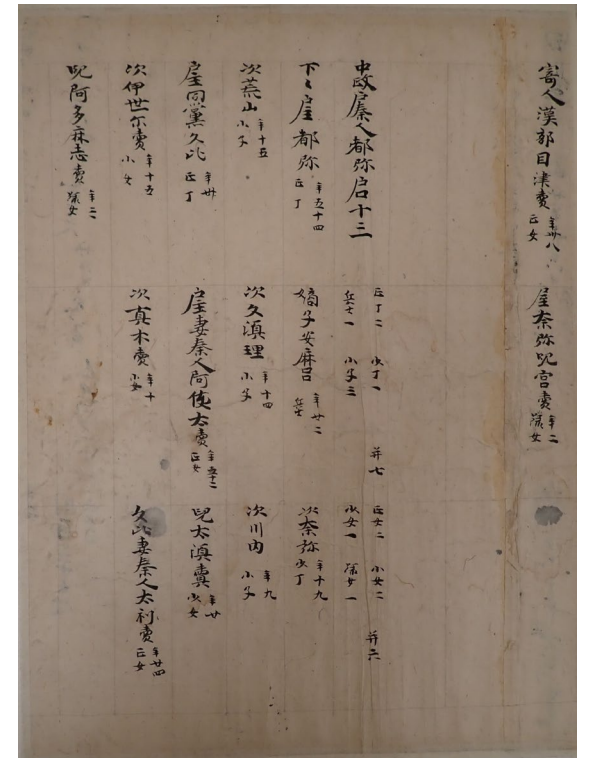 寄人漢部目津賣 年卅八 正女 戸主奈弥児宮賣 年二 緑女
中政戸秦人都弥戸口十三 正丁二 少丁一 兵士一 小子三 并七 正女二 小女二 少女一 緑女一 并六
下々戸主都弥 年五十四 正丁 嫡子安麻呂 年廿二 兵士 次奈弥 年十九 少丁
次荒山 年十五 小子 次久湏理 年十四 小子 次川内 年九 小子
戸主同黨久比 年卅 正丁 戸主妻秦人阿使太賣 年五十二 正女 児太湏賣 年廿 少女
次伊世尓賣 年十五 小女 次真木賣 年十 小女 久比妻秦人太利賣 年廿四 正女
児阿多麻志賣 年二 緑女